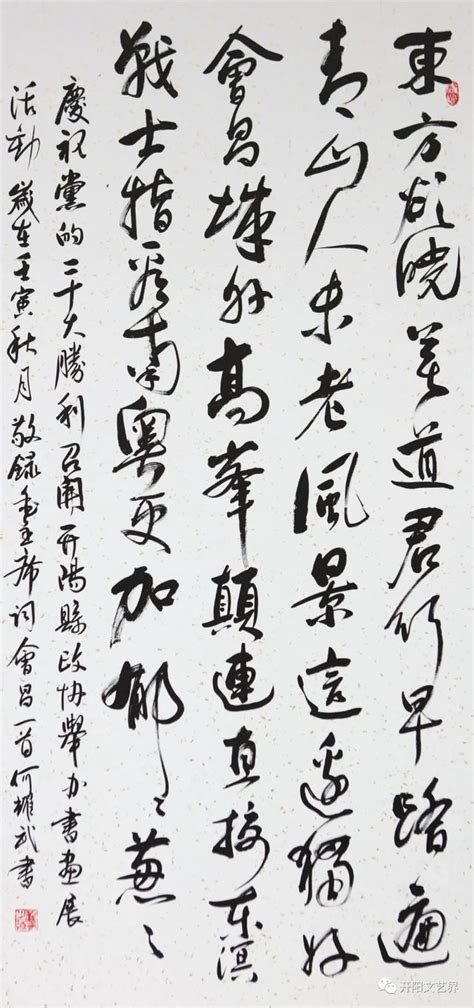 東方欲曉莫道君行早踏遍
青山人未老風景這邊獨好
會昌城外高峯顛連直接東溟
戰士指看南粵更加郁〻蔥〻
慶祝黨的二十大勝利召開开陽縣政协舉办書畫展
活動 歲在壬寅秋月 敬録毛主席词會昌一首何耀武書
开阳文艺界